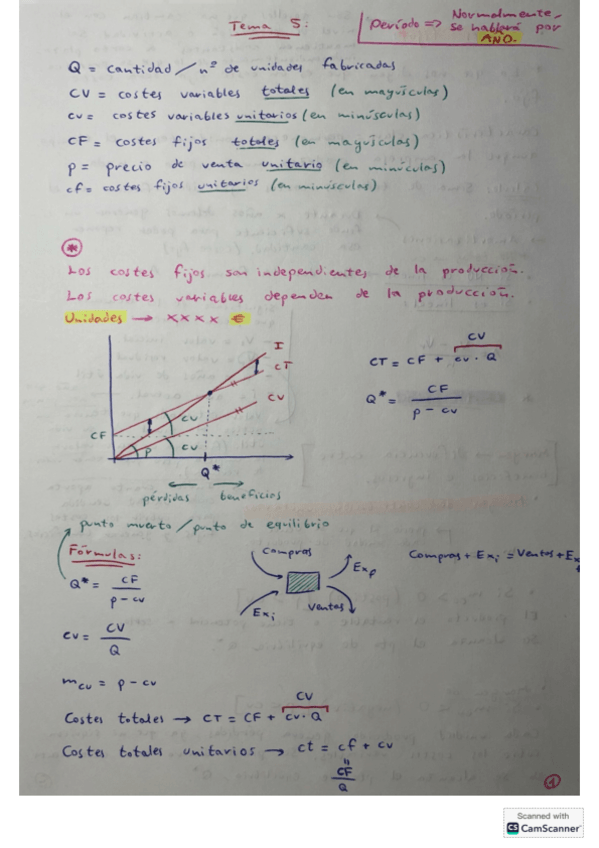 Tema 5:
Período => Normalmente, se hablará por AÑO.
Q = cantidad / nº de unidades fabricadas
CV = costes variables totales (en mayúsculas)
cv = costes variables unitarios (en minúsculas)
CF = costes fijos totales (en mayúsculas)
p = precio de venta unitario (en minúsculas)
cf = costes fijos unitarios (en minúsculas)
*
Los costes fijos son independientes de la producción.
Los costes variables dependen de la producción.
Unidades → xxxx €
I
CT
CV
CF
cv
cv
p
Q*
pérdidas beneficios
CV
CT = CF + cv · Q
Q* = CF / p - cv
punto muerto / punto de equilibrio
Fórmulas:
Q* = CF / p - cv
cv = CV / Q
mcv = p - cv
Compras
Exf
Exi
Ventas
Compras + Exi = Ventas + Exf
CV
Costes totales → CT = CF + cv · Q
Costes totales unitarios → ct = cf + cv
=
CF / Q
1
Scanned with
CS CamScanner